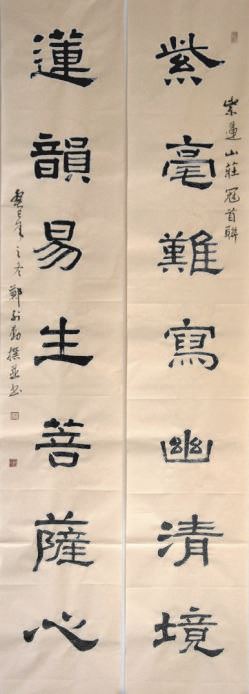 紫毫難寫幽清境
紫蓮山莊冠首聯
蓮韻易生菩薩心
之冬鄭
撰並書